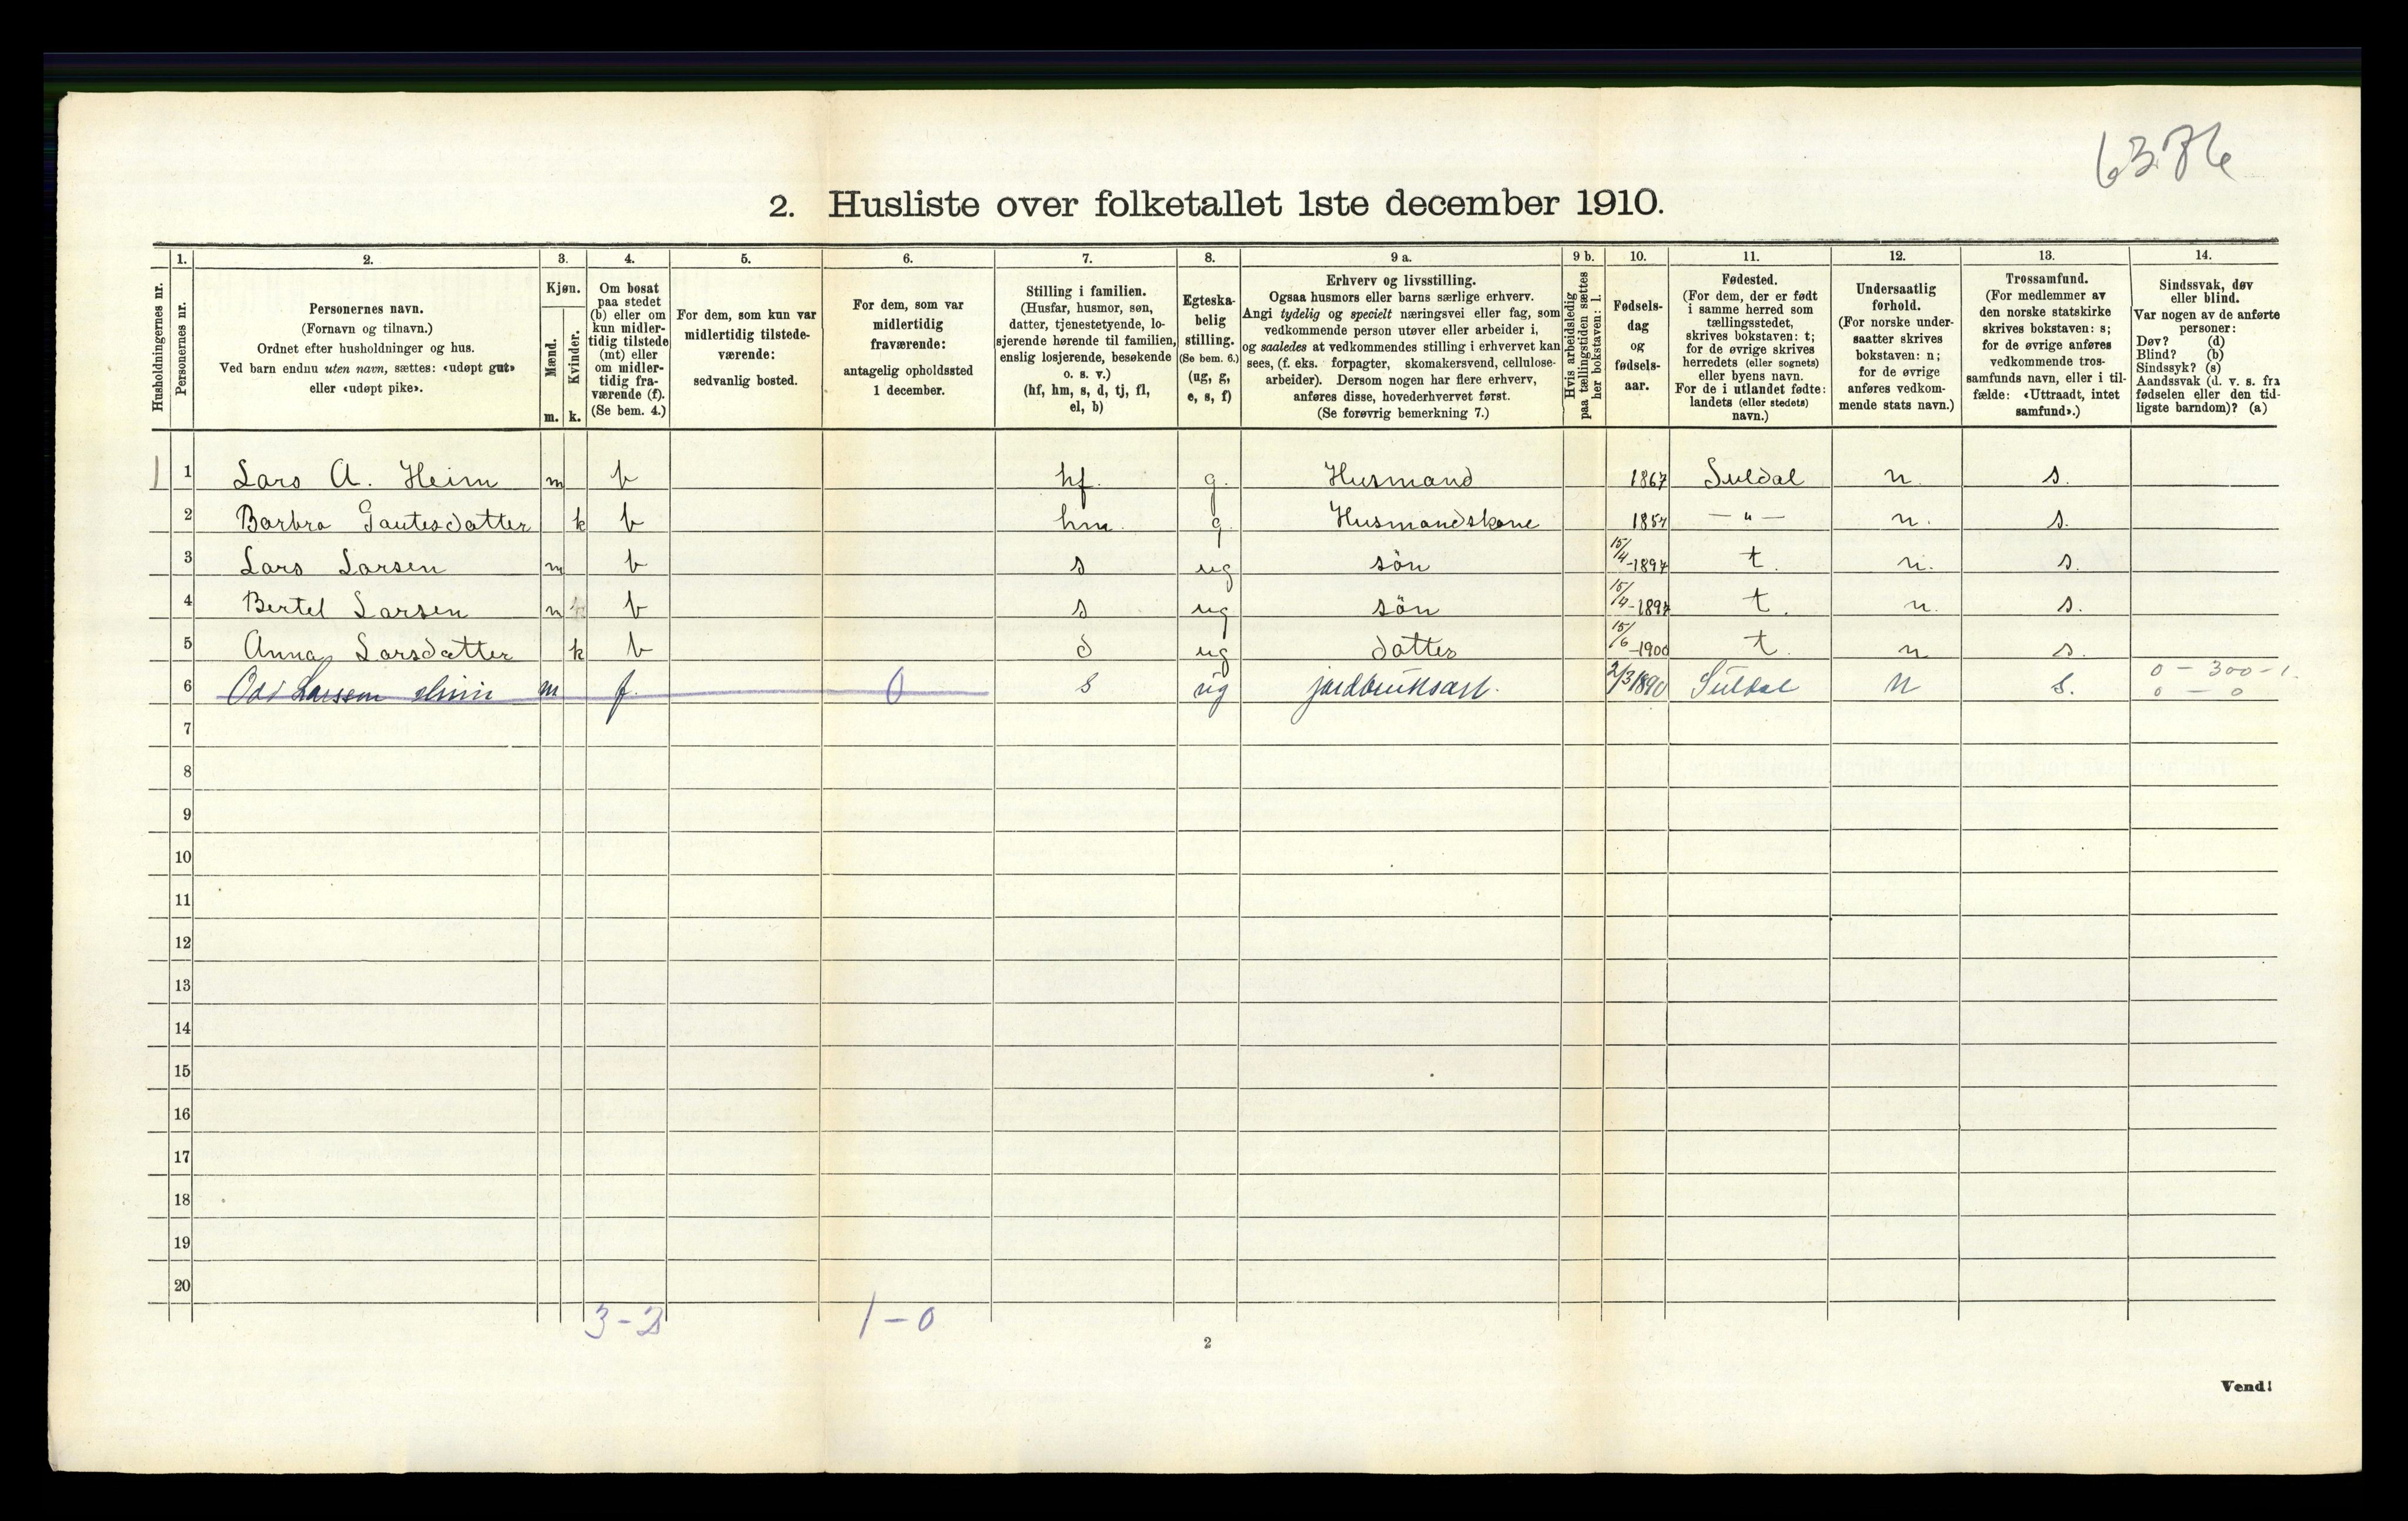 6376
2. Husliste over folketallet 1ste december 1910.
1. 2. 3. 4. 5. 6. 7. 8. 9 a. 9 b. 10. 11. 12. 13. 14.
Husholdningernes nr.
Personernes nr.
Personernes navn.
(Fornavn og tilnavn.)
Ordnet efter husholdninger og hus.
Ved barn endnu uten navn, sættes: «udøpt gut»
eller «udøpt pike».
Kjøn.
Mænd.
m.
Kvinder.
k.
Om bosat
paa stedet
(b) eller om
kun midler-
tidig tilstede
(mt) eller
om midler-
tidig fra-
værende (f).
(Se bem. 4.)
For dem, som kun var
midlertidig tilstede-
værende:
sedvanlig bosted.
For dem, som var
midlertidig
fraværende:
antagelig opholdssted
1 december.
Stilling i familien.
(Husfar, husmor, søn,
datter, tjenestetyende, lo-
sjerende hørende til familien,
enslig losjerende, besøkende
o. s. v.)
(hf, hm, s, d, tj, fl,
el, b)
Egteska-
belig
stilling.
(Se bem. 6.)
(ug, g,
e, s, f)
Erhverv og livsstilling.
Ogsaa husmors eller barns særlige erhverv.
Angi tydelig og specielt næringsvei eller fag, som
vedkommende person utøver eller arbeider i,
og saaledes at vedkommendes stilling i erhvervet kan
sees, (f. eks. forpagter, skomakersvend, cellulose-
arbeider). Dersom nogen har flere erhverv,
anføres disse, hovederhvervet først.
(Se forøvrig bemerkning 7.)
Hvis arbeidsledig
paa tællingstiden sættes
her bokstaven: l.
Fødsels-
dag
og
fødsels-
aar.
Fødested.
(For dem, der er født
i samme herred som
tællingsstedet,
skrives bokstaven: t;
for de øvrige skrives
herredets (eller sognets)
eller byens navn.
For de i utlandet fødte:
landets (eller stedets)
navn.)
Undersaatlig
forhold.
(For norske under-
saatter skrives
bokstaven: n;
for de øvrige
anføres vedkom-
mende stats navn.)
Trossamfund.
(For medlemmer av
den norske statskirke
skrives bokstaven: s;
for de øvrige anføres
vedkommende tros-
samfunds navn, eller i til-
fælde: «Uttraadt, intet
samfund».)
Sindssvak, døv
eller blind.
Var nogen av de anførte
personer:
Døv? (d)
Blind? (b)
Sindssyk? (s)
Aandssvak (d. v. s. fra
fødselen eller den tid-
ligste barndom)? (a)
1 1 Lars A. Heim m b hf. g. Husmand 1867 Suldal n. s.
2 Barbro Gautesdatter k b hm. g. Husmandskone 1854 — „ — n. s.
3 Lars Larsen m b s ug søn 15/4-1897 t. n. s.
4 Bertel Larsen m b s ug søn 15/4-1897 t. n. s.
5 Anna Larsdatter k b d ug datter 15/6-1900 t. n s.
6 Odd Larssen m f. 0 s ug jordbruksarb. 2/3 1890 Suldal n s. 0 - 300 - 1.
0 - 0
7
8
9
10
11
12
13
14
15
16
17
18
19
20
3 - 2 1 - 0
2
Vend!